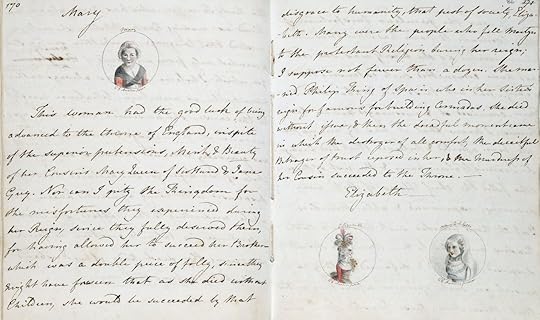 170
Mary
This woman had the good luck of being
advanced to the throne of England, inspite
of the superior pretensions, Merit, & Beauty
of her Cousins Mary Queen of Scotland & Jane
Grey. Nor can I pity the Kingdom for
the misfortunes they experienced during
her Reign, since they fully deserved them,
for having allowed her to succeed her Brother—
which was a double piece of folly, since they
might have foreseen that as she died without
Children, she would be succeeded by that
171
disgrace to humanity, that pest of society, Eliza-
-beth. Many were the people who fell Martyrs
to the protestant Religion during her reign;
I suppose not fewer than a dozen. She mar-
-ried Philip King of Spain who in her Sister's
reign for famous for building Armadas. She died
without issue, & then the dreadful moment came
in which the destroyer of all comfort, the deceitful
Betrayer of trust reposed in her, & the Murderess of
her Cousin succeeded to the Throne.—
Elizabeth